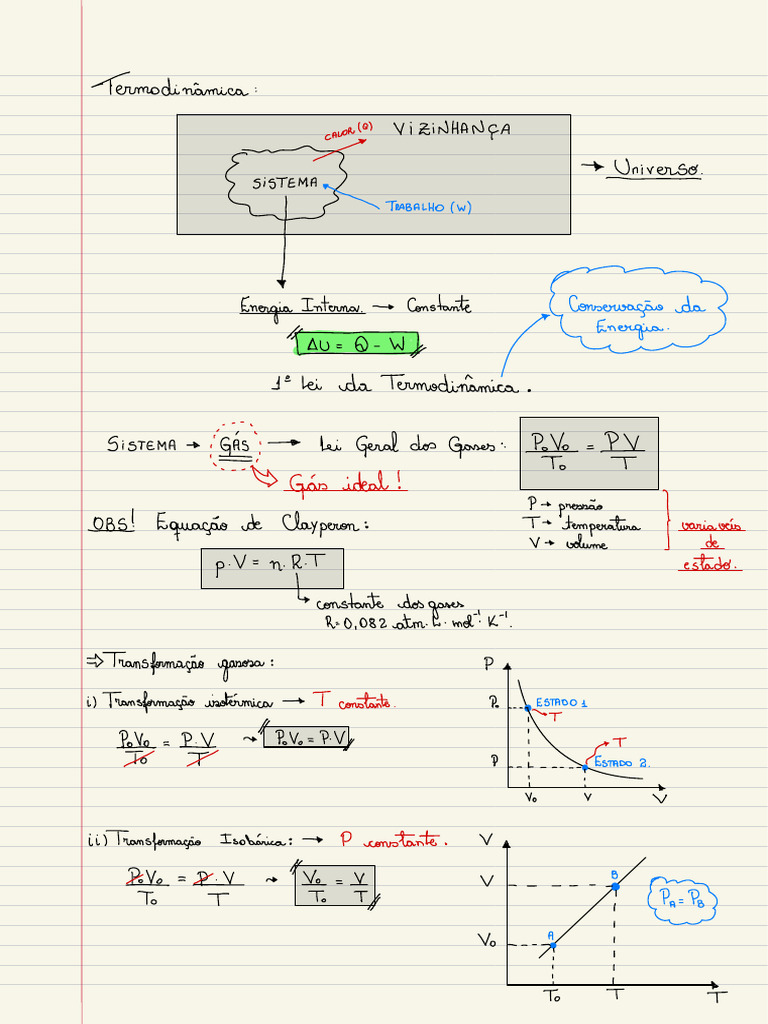 Termodinâmica:
CALOR (Q)
VIZINHANÇA
SISTEMA
TRABALHO (W)
→ Universo.
Energia Interna. → Constante
ΔU = Q - W
Conservação da
Energia.
1ª Lei da Termodinâmica.
SISTEMA → GÁS → Lei Geral dos Gases: P₀V₀/T₀ = PV/T
Gás ideal!
P → pressão
T → temperatura
V → volume
variavéis
de
estado.
OBS! Equação de Clayperon:
p.V = n.R.T
constante dos gases
R=0,082 atm.L.mol⁻¹.K⁻¹.
⇒ Transformação gasosa:
i) Transformação isotérmica → T constante.
P₀V₀/T₀ = P.V/T ⇝ P₀V₀ = P.V
P
P₀
ESTADO 1
T
T
P
ESTADO 2.
V₀ V
V
ii) Transformação Isobárica: → P constante.
P₀V₀/T₀ = P.V/T ⇝ V₀/T₀ = V/T
V
V
B
P_A = P_B
V₀
A
T₀ T
T